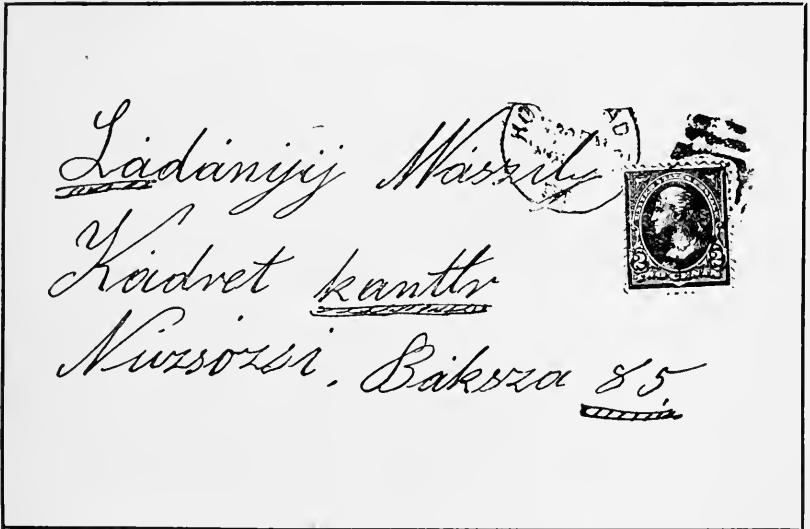 Ládányij Wászily
Kádret kanttr
Nüzsözsi, Báksza 85